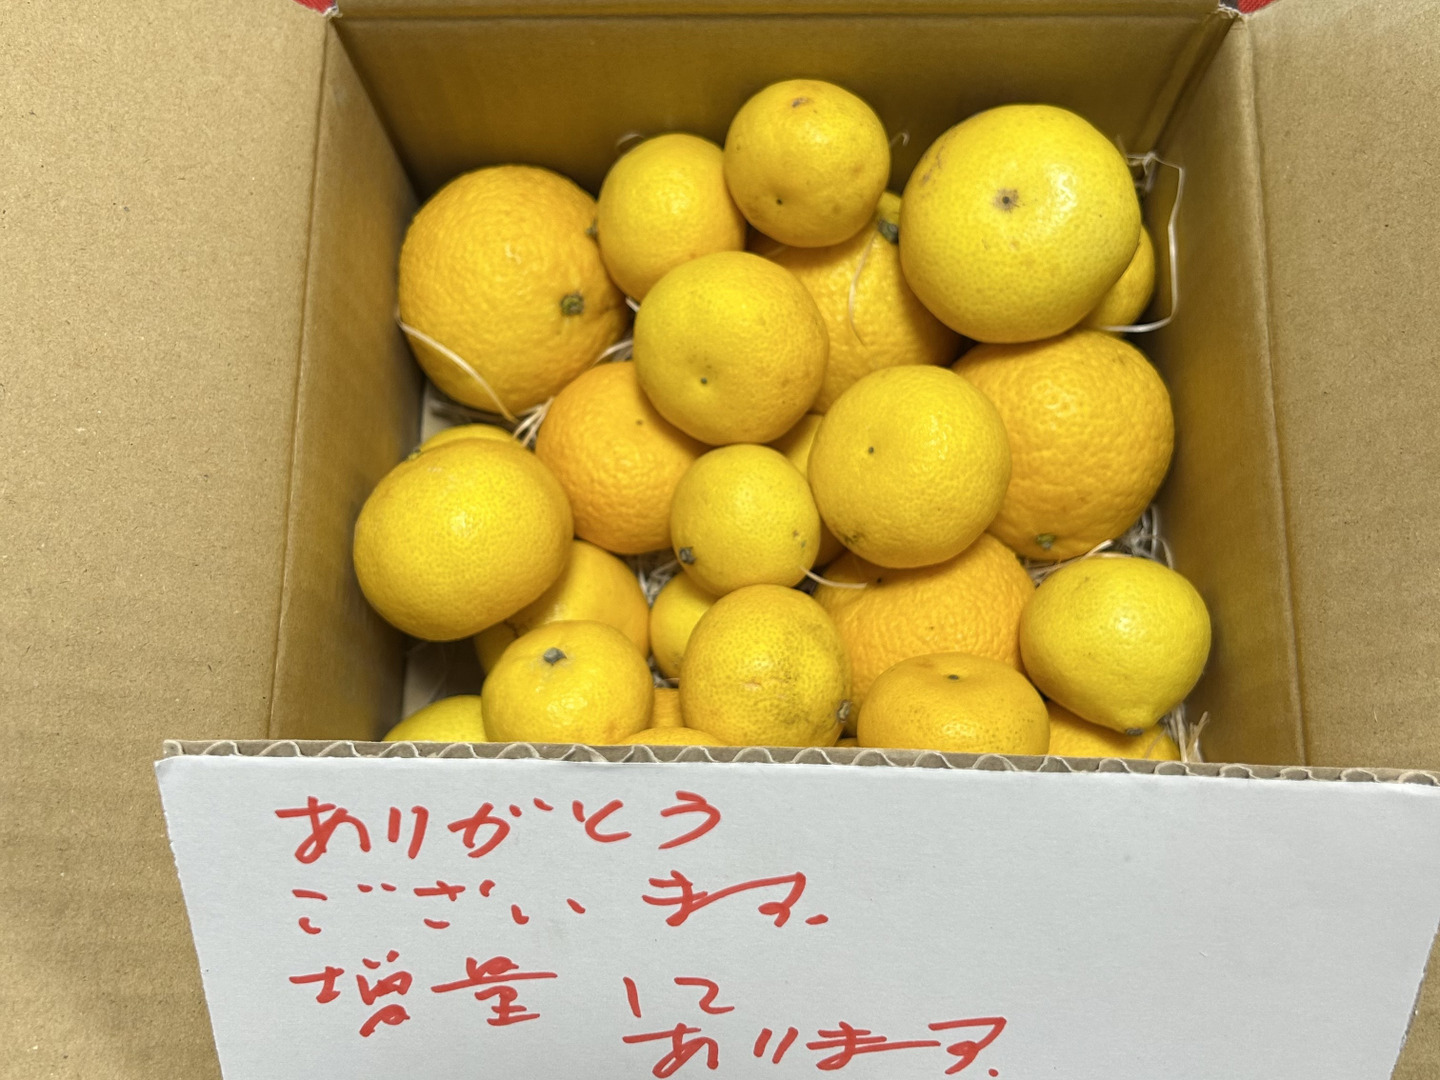 ありがとう
ございます.
増量して
あります.